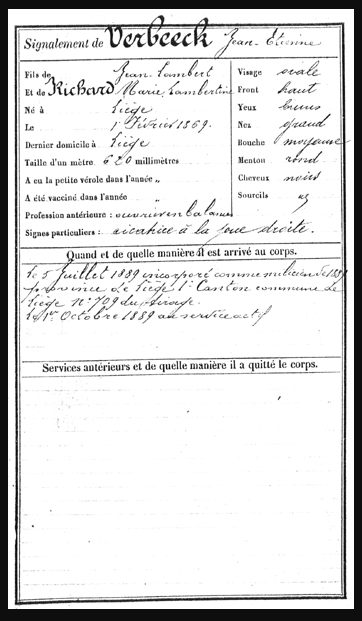 Signalement de Verbeeck Jean Etienne
Fils de Jean Lambert
Et de Richard Marie Lambertine
Né à Liège
Le 1r Février 1869.
Dernier domicile à Liège
Taille d'un mètre 620 millimètres
A eu la petite vérole dans l'année „
A été vacciné dans l'année „
Profession antérieure : ouvrier en balances
Signes particuliers : cicatrice à la joue droite.
Visage ovale
Front haut
Yeux bruns
Nez grand
Bouche moyenne
Menton rond
Cheveux noirs
Sourcils id
Quand et de quelle manière il est arrivé au corps.
Le 5 Juillet 1889 incorporé comme milicien de 1889
province de Liège 1r Canton commune de
Liège n° 709 du tirage.
Le 1er Octobre 1889 au service actif
Services antérieurs et de quelle manière il a quitté le corps.